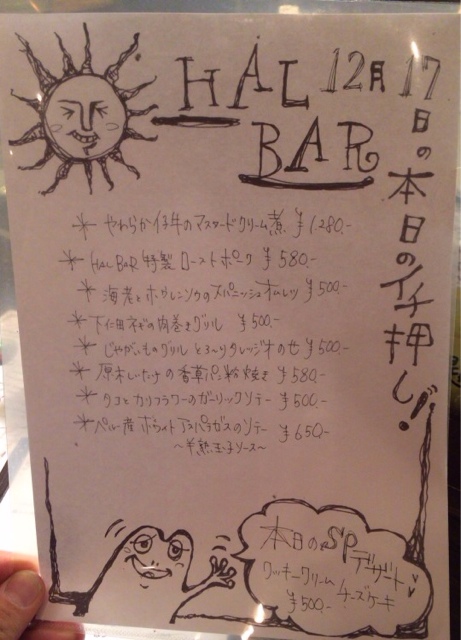 HAL BAR
12月17日の本日のイチ押し!
* やわらか仔牛のマスタードクリーム煮 ¥1,280.-
* HAL BAR 特製ローストポーク ¥580.-
* 海老とホウレンソウのスパニッシュオムレツ ¥500.-
* 下仁田ネギの肉巻きグリル ¥500.-
* じゃがいものグリル とろ〜りタレッジオのせ ¥500.-
* 原木しいたけの香草パン粉焼き ¥580.-
* タコとカリフラワーのガーリックソテー ¥500.-
* ペルー産ホワイトアスパラガスのソテー ¥650.-
〜半熟玉子ソース〜
本日のSPデザート
クッキークリームチーズケーキ
¥500-